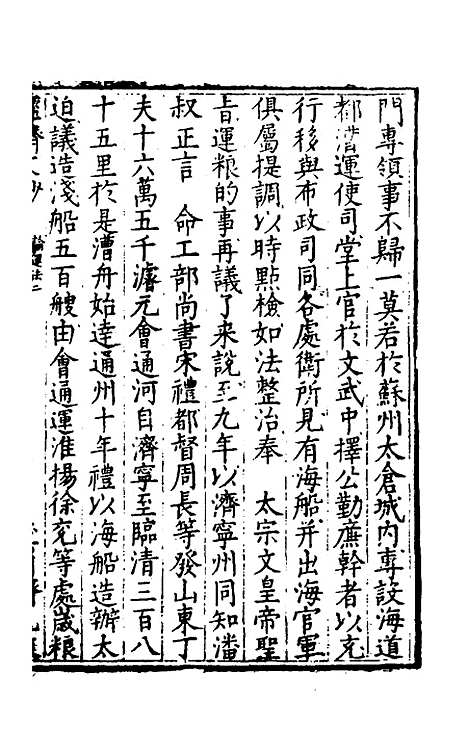 門專領事不歸一莫若於蘇州太倉城内專設海道
都漕運使司堂上官於文武中擇公勤廉幹者以充
行移與布政司同各處衛所見有海船并出海官軍
俱屬提調以時點檢如法整治奉　太宗文皇帝聖
旨運粮的事再議了来說至九年以濟寧州同知潘
叔正言　命工部尚書宋禮都督周長等發山東丁
夫十六萬五千濬元會通河自濟寧至臨清三百八
十五里於是漕舟始達通州十年禮以海船造辦太
迫議造淺船五百艘由會通運淮揚徐兖等處歲粮